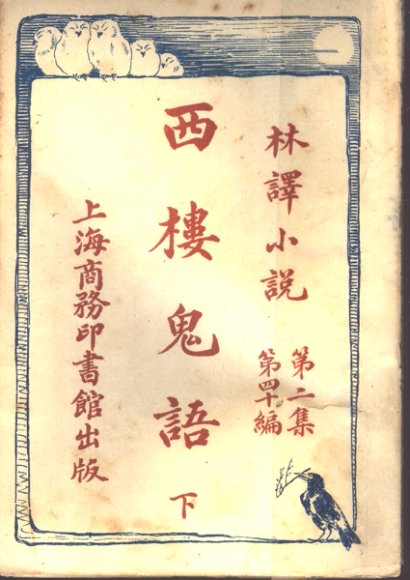 林譯小説
第二集
第四十編
西樓鬼語
下
上海商務印書館出版